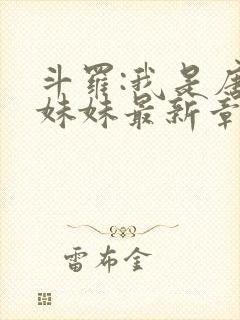 斗罗:我是唐
妹妹最新章
雷布金